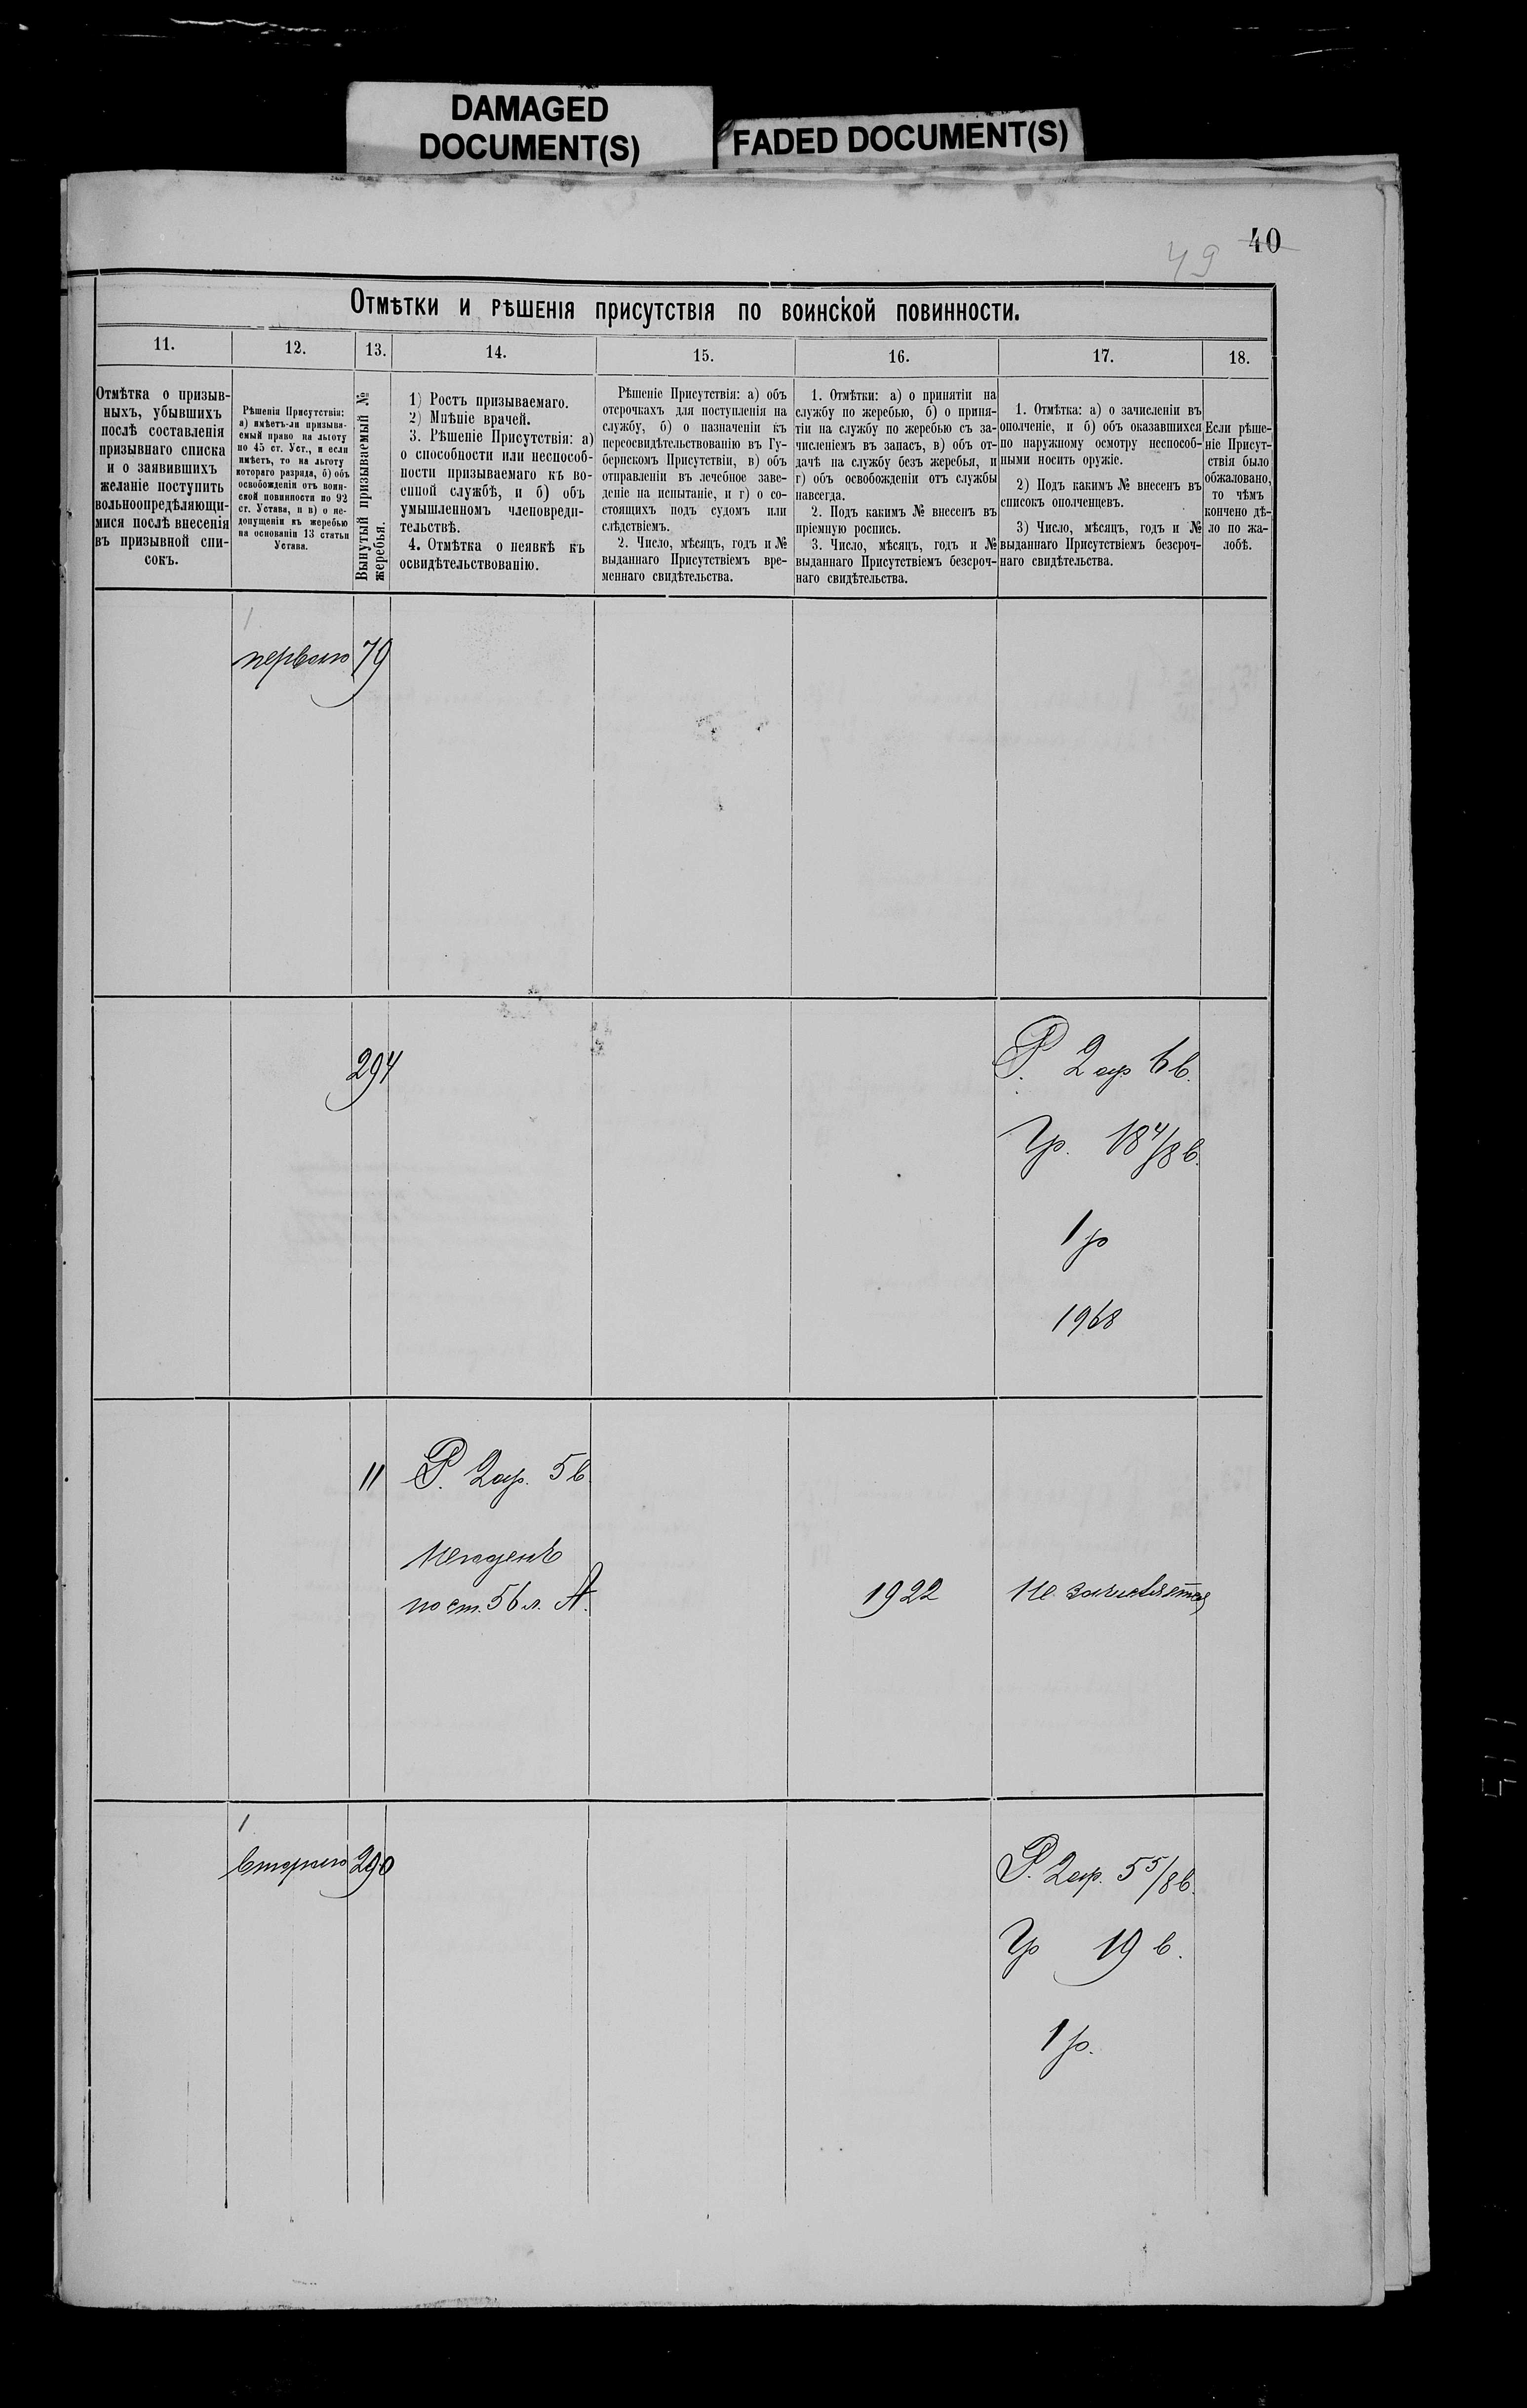 DAMAGED
DOCUMENT(S)
FADED DOCUMENT(S)
49 40
Отмѣтки и рѣшенія присутствія по воинской повинности.
11. 12. 13. 14. 15. 16. 17. 18.
Отмѣтка о призыв-
ныхъ, убывшихъ
послѣ составленія
призывнаго списка
и о заявившихъ
желаніе поступить
вольноопредѣляющи-
мися послѣ внесенія
въ призывной спи-
сокъ.
Рѣшенія Присутствія:
а) имѣетъ-ли призыва-
емый право на льготу
по 45 ст. Уст., и если
имѣетъ, то на льготу
котораго разряда, б) объ
освобожденіи отъ воин-
ской повинности по 92
ст. Устава, и в) о не-
допущеніи къ жеребью
на основаніи 13 статьи
Устава.
Вынутый призываемый №
жеребья.
1) Ростъ призываемаго.
2) Мнѣніе врачей.
3. Рѣшеніе Присутствія: а)
о способности или неспособ-
ности призываемаго къ во-
енной службѣ, и б) объ
умышленномъ членовреди-
тельствѣ.
4. Отмѣтка о неявкѣ къ
освидѣтельствованію.
Рѣшеніе Присутствія: а) объ
отсрочкахъ для поступленія на
службу, б) о назначеніи къ
переосвидѣтельствованію въ Гу-
бернскомъ Присутствіи, в) объ
отправленіи въ лечебное заве-
деніе на испытаніе, и г) о со-
стоящихъ подъ судомъ или
слѣдствіемъ.
2. Число, мѣсяцъ, годъ и №
выданнаго Присутствіемъ вре-
меннаго свидѣтельства.
1. Отмѣтки: а) о принятіи на
службу по жеребью, б) о приня-
тіи на службу по жеребью съ за-
численіемъ въ запасъ, в) объ от-
дачѣ на службу безъ жеребья, и
г) объ освобожденіи отъ службы
навсегда.
2. Подъ какимъ № внесенъ въ
пріемную роспись.
3. Число, мѣсяцъ, годъ и №
выданнаго Присутствіемъ безсроч-
наго свидѣтельства.
1. Отмѣтка: а) о зачисленіи въ
ополченіе, и б) объ оказавшихся
по наружному осмотру неспособ-
ными носить оружіе.
2) Подъ какимъ № внесенъ въ
списокъ ополченцевъ.
3) Число, мѣсяцъ, годъ и №
выданнаго Присутствіемъ безсроч-
наго свидѣтельства.
Если рѣше-
ніе Присут-
ствія было
обжаловано,
то чѣмъ
кончено дѣ-
ло по жа-
лобѣ.
1
первого 79
294 Р. 2 ар 6 в.
Гр. 18 4/8 в.
1 р
1968
11 Р. 2 ар. 5 в
Негоденъ
по ст. 56 л. А. 1922 Не зачисляется
1
второго 290 Р. 2 ар. 5 5/8 в.
Гр 19 в.
1 р.